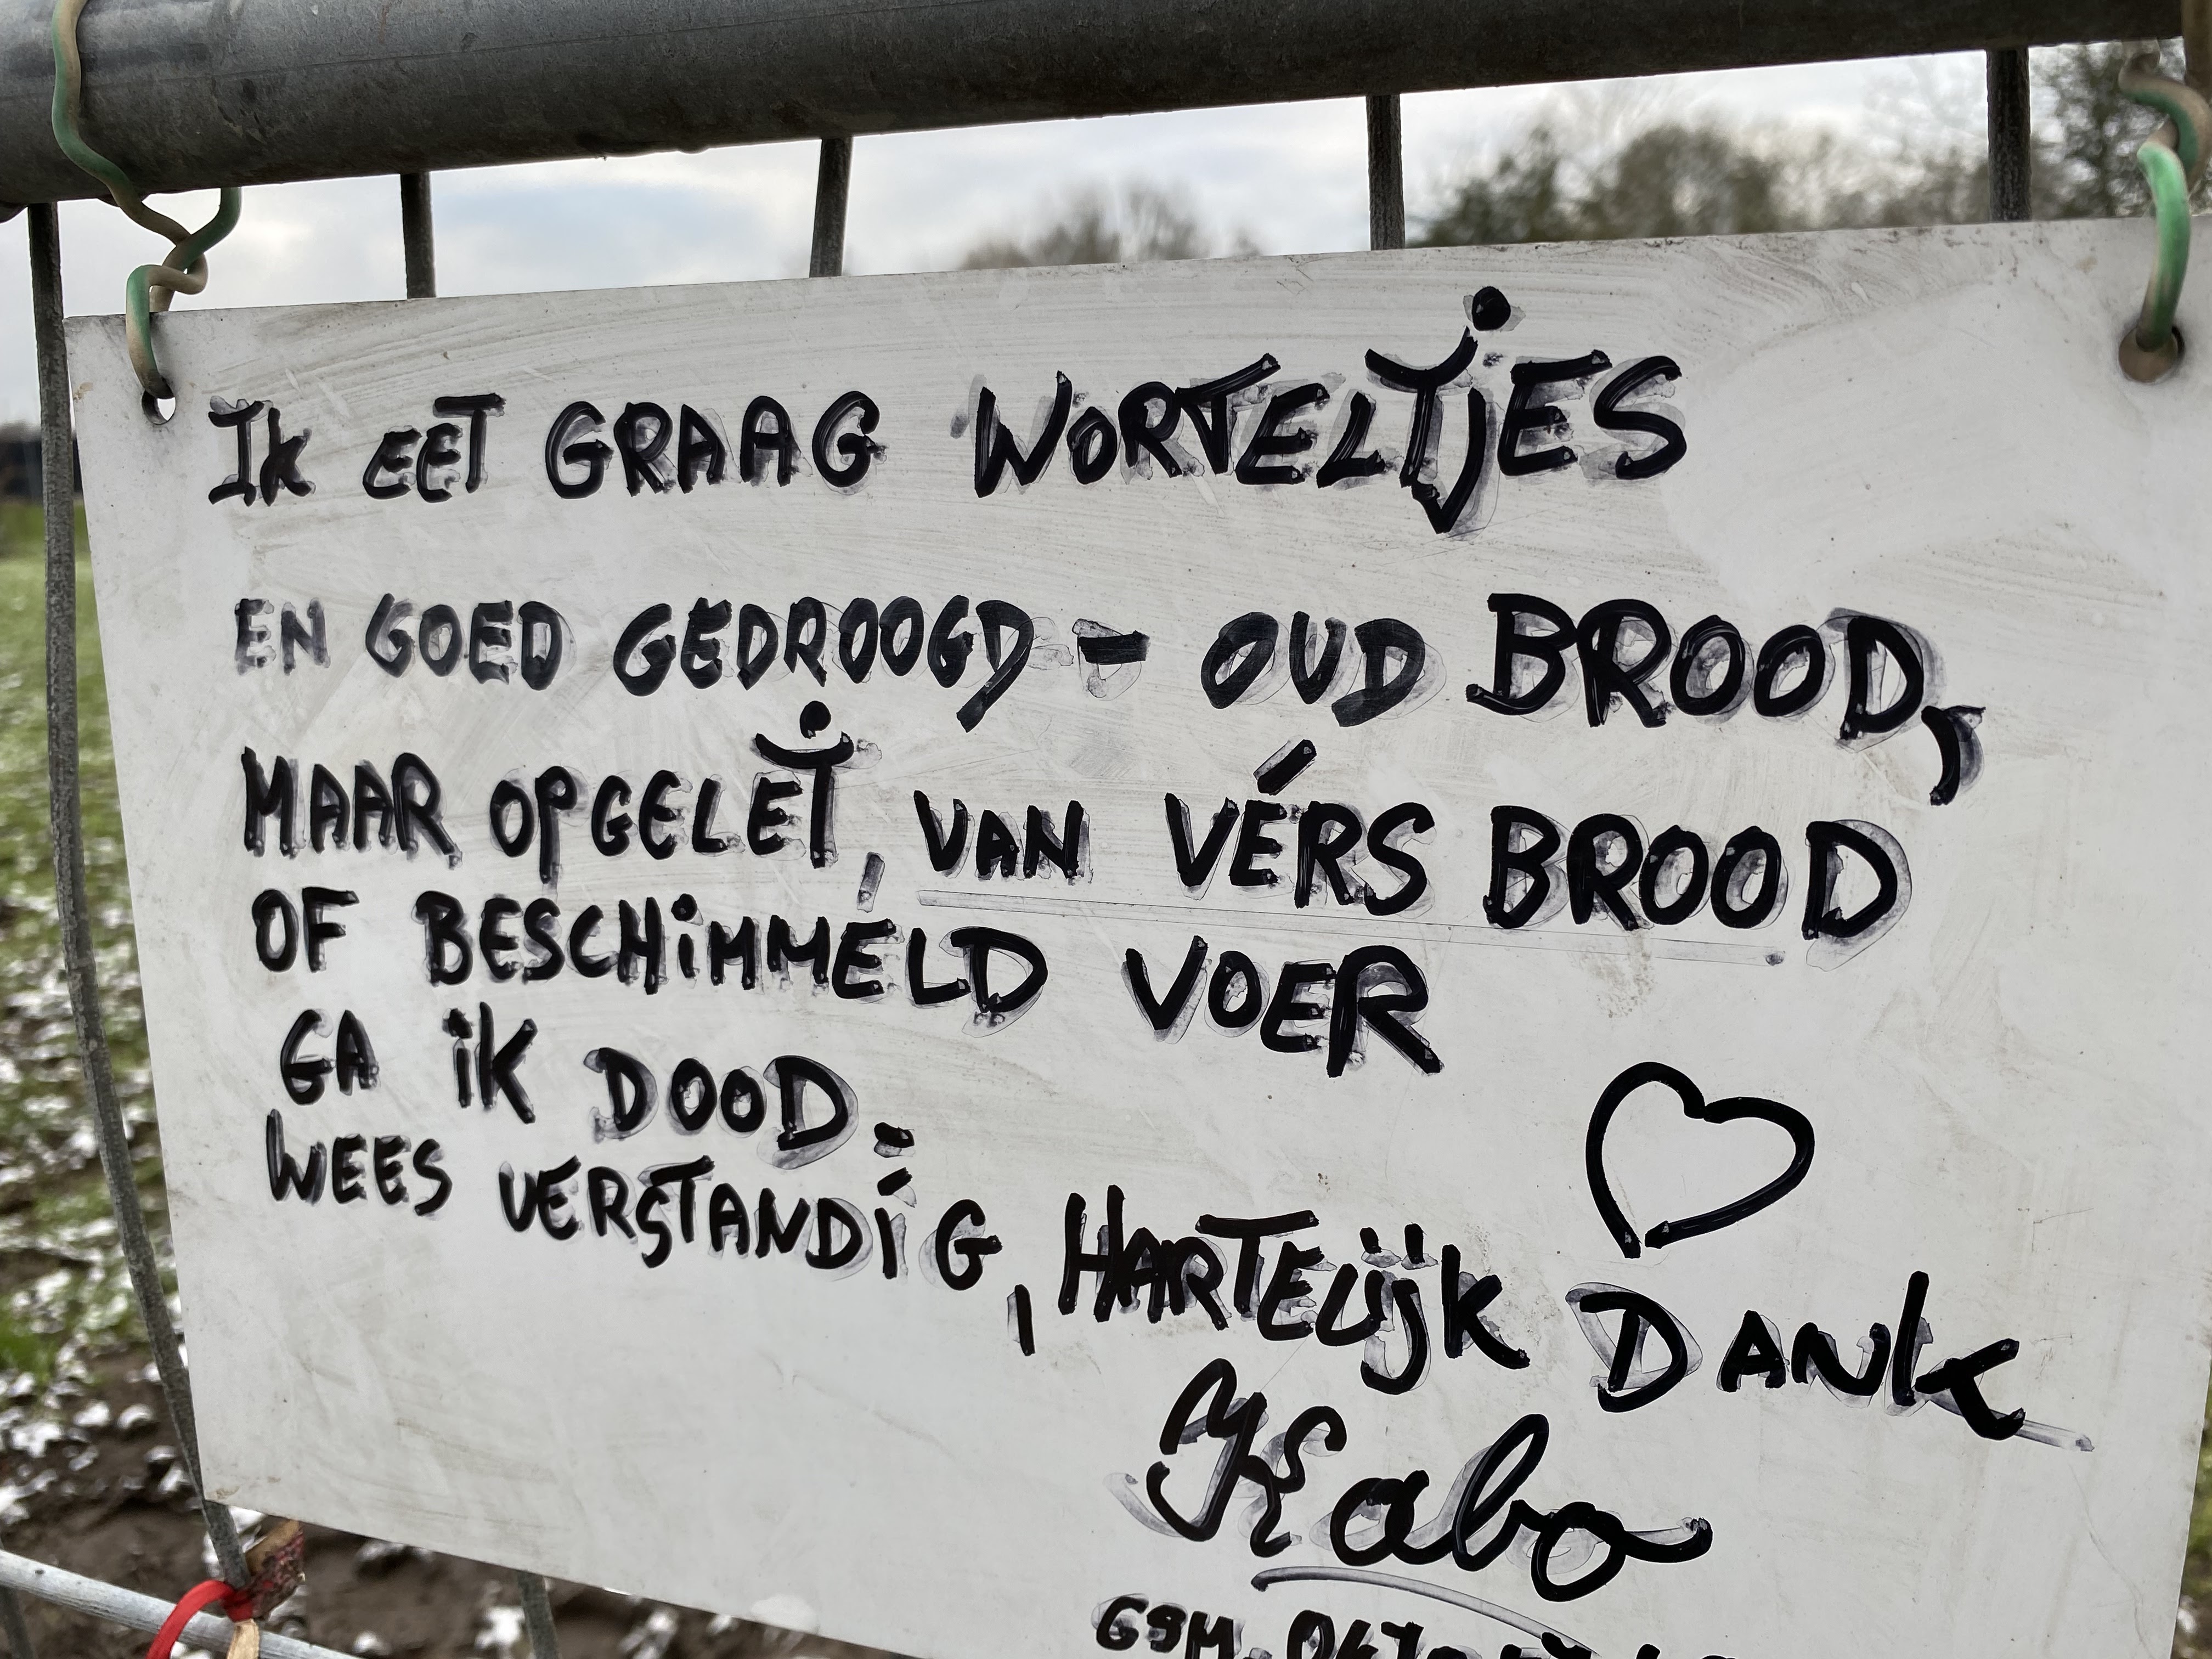 IK EET GRAAG WORTELTJES
EN GOED GEDROOGD - OUD BROOD,
MAAR OPGELET, VAN VÉRS BROOD
OF BESCHIMMELD VOER
GA IK DOOD.
WEES VERSTANDIG, HARTELIJK DANK
Kabo
GSM.